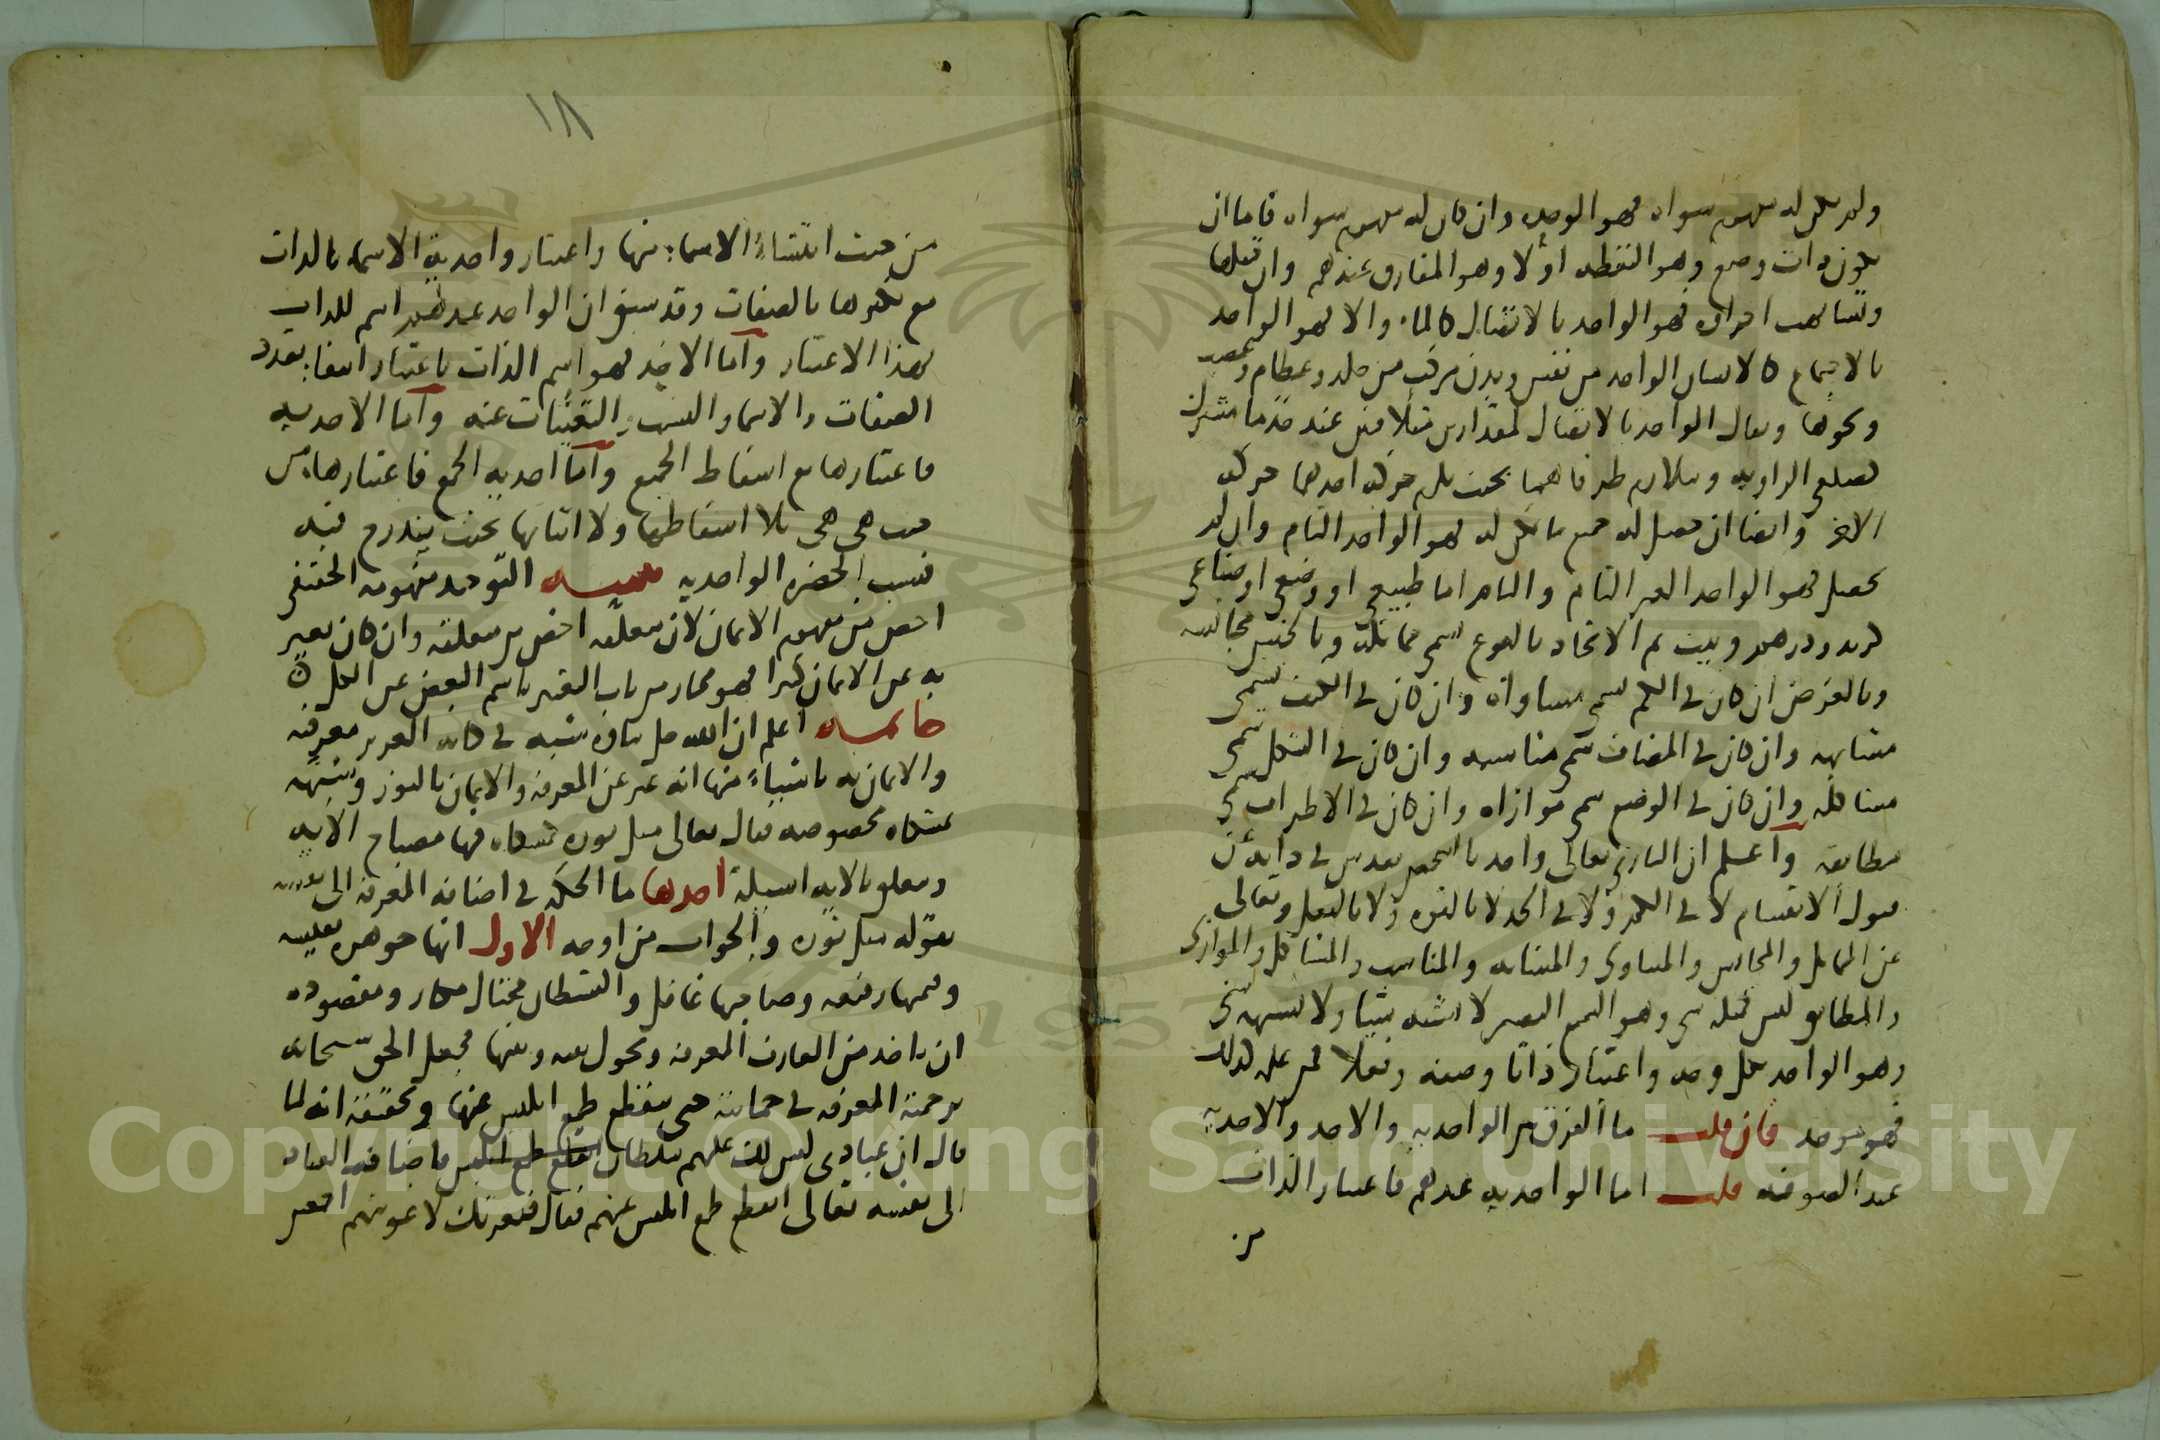 ولم يكن له مفهوم سواه فهو الوحدة وان كان له مفهوم سواه فاما ان
يكون ذات وضع وهو النقطه أو لا وهو المفارق عندهم وان قبلها
وتشابهت اجزاؤه فهو الواحد بالاتصال كالماء والا فهو الواحد
بالاجتماع كالانسان الواحد من نفس وبدن مركب من جلد وعظام وعصب
ونحوها ويقال الواحد بالاتصال لمقدارين مثلا عند حد ما مشترك
كضلعي الزاويه ويتلازم طرفاهما بحيث يلزم حركه احدهما حركه
الاخر وايضا ان حصل له جميع ما يمكن له فهو الواحد التام وان لم
يحصل فهو الواحد الغير التام والتام اما طبيعي او وضعي او صناعي
كزيد ودرهم وبيت ثم الاتحاد بالنوع يسمى مماثلة وبالجنس مجانسه
وبالعرض ان كان في الكم يسمى مساواة وان كان في الكيف يسمى
مشابهه وان كان في المضاف يسمى مناسبه وان كان في الشكل يسمى
مشاكله وان كان في الوضع يسمى موازاه وان كان في الاطراف يسمى
مطابقه واعلم ان الباري تعالى واحد بالشخص تقدس في ذاته عن
قبول الانقسام لا في الكم ولا في الحد لا بالقوه ولا بالفعل وتعالى
عن المماثل والمجانس والمساوي والمشابه والمناسب والمشاكل والموازي
والمطابق ليس كمثله شي وهو السميع البصير لا يشبه شيئا ولا يشبهه شي
وهو الواحد بكل وجه واعتبار ذاتا وصفه وفعلا فمن علم كذلك
فهو موحد فان قلت ما الفرق بين الواحديه والاحد والاحدية
عند الصوفيه قلت اما الواحديه عندهم فاعتبار الذات
من
١٨
من حيث انتشاء الاسماء منها واعتبار واحدية الاسماء بالذات
مع تكثرها بالصفات وقد سبق ان الواحد عندهم اسم للذات
بهذا الاعتبار واما الاحد فهو اسم الذات باعتبار انتفاء تعدد
الصفات والاسما والنسب والتعينات عنه واما الاحديه
فاعتبارها مع اسقاط الجميع واما احديه الجمع فاعتبارها من
حيث هي هي بلا اسقاطها ولا اثباتها بحيث يندرج فيه
نسب الحضره الواحديه تنبيه التوحيد مفهومه الحقيقي
اخص من مفهوم الايمان لان متعلقه اخص من متعلقه وان كان يعبر
به عن الايمان كثيرا فهو مجاز من باب التعبير باسم البعض عن الكل
خاتمه اعلم ان الله جل شانه شبه في كتابه العزيز معرفته
والايمان به باشياء منها انه عبر عن المعرفه والايمان بالنور وشبهه
بمشكاه مخصوصه فقال تعالى مثل نوره كمشكاه فيها مصباح الآيه
ويتعلق بالايه اسيلة احدها ما الحكمه في اضافه المعرفه الى نفسه
بقوله مثل نوره والجواب من اوجه الاول انها جوهره نفيسه
وقيمتها رفيعه وصاحبها غافل والشيطان محتال مكار ومقصوده
ان ياخذ من العارف المعرفه ويحول بينه وبينها فجعل الحق سبحانه
برحمته المعرفه في حمايته حتى ينقطع طمع ابليس عنها وتحقيقه انه لما
قال ان عبادي ليس لك عليهم سلطان انقطع طمع ابليس فاضافه العباد
الى نفسه تعالى اقطع طمع ابليس عنهم فقال فبعزتك لاغوينهم اجمعين